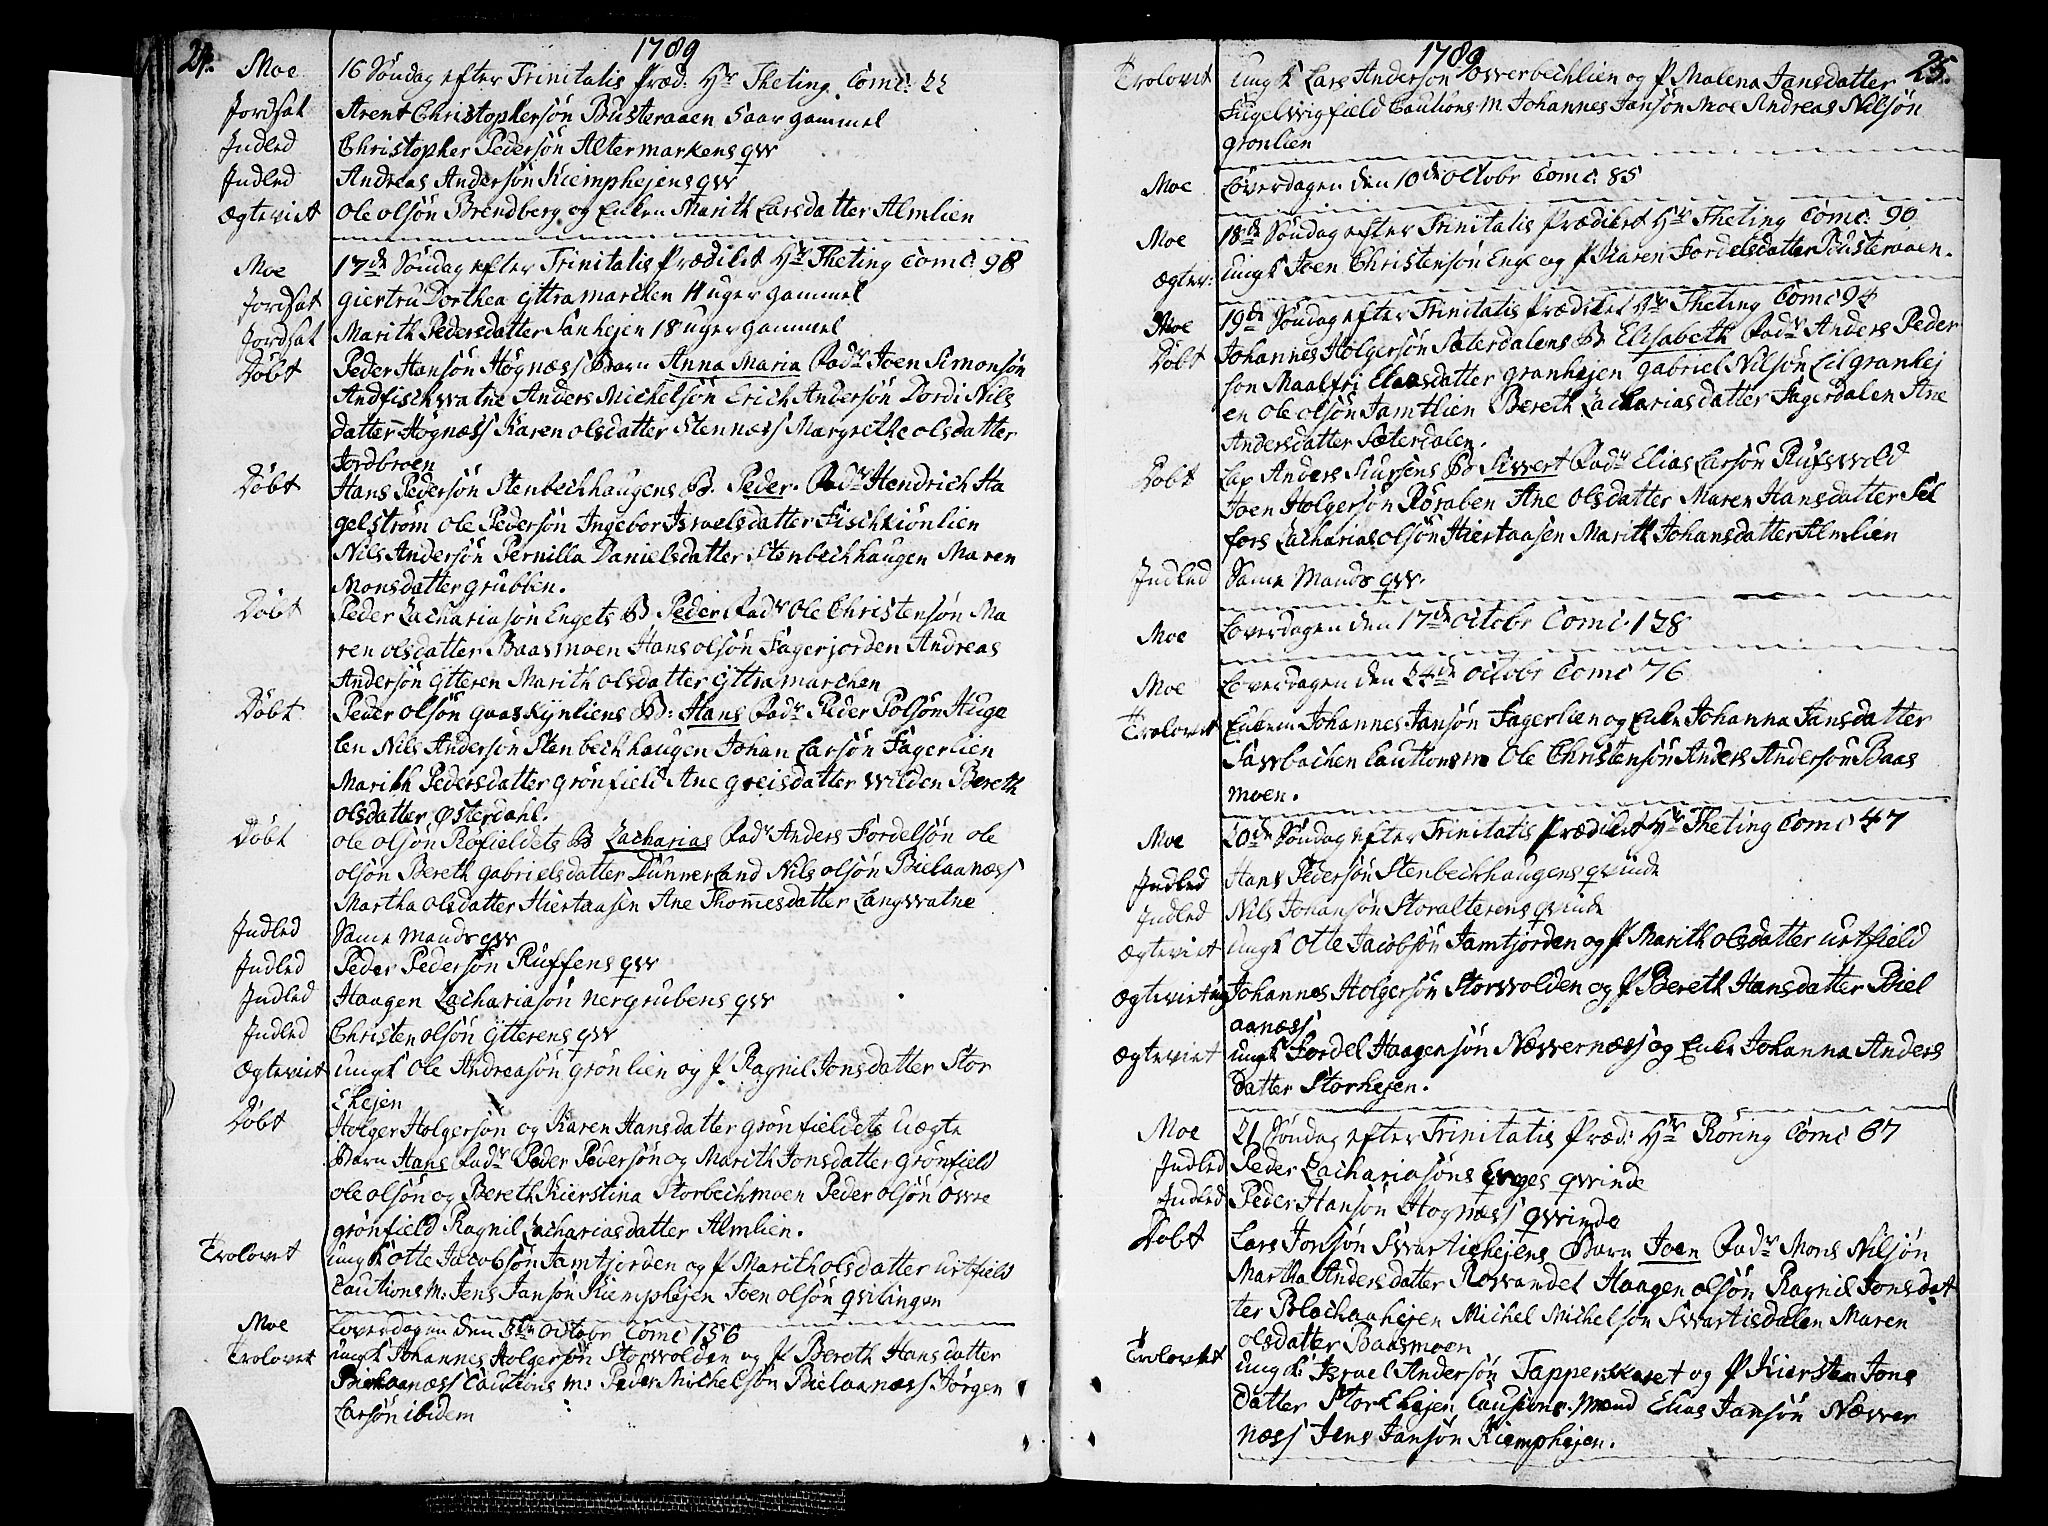 24.
1789
Moe 16 Søndag efter Trinitatis Præd: Hr Theting. Comc: 22
Jordsat Arent Christophersøn Busteraaen 5 aar gammel
Indled Christopher Pedersøn Altermarkens qw
Indled Andreas Andersøn Kiemphejens qw
Ægteviet Ole Olsøn Brendberg og Enken Marith Larsdatter Almlien
Moe 17de Søndag efter Trinitatis Prædiket Hr Theting Comc: 98
Jordsat Giertru Dorthea Ytteramarchen 11 uger gammel
Jordsat Marith Pedersdatter Sanhejen 18 uger gammel
Døbt Peder Hansøn Høgnæss Barn Anna Maria Fadr Joen Simonsøn
Andfischwatne Anders Michelsøn Erich Andersøn Dordi Nils
datter Høgnæss Karen olsdatter Stennæss Margrethe olsdatter
Jordbroen
Døbt Hans Pedersøn Stenbechhaugens B. Peder. Fadr Hendrich Ha
gelstrøm Ole Pedersøn Ingebor Israelsdatter Fischkiønlien
Nils Andersøn Pernilla Danielsdatter Stenbechhaugen Maren
Monsdatter Grubben.
Døbt Peder Zachariasøn Engets B. Peder Fadr Ole Christensøn Ma
ren olsdatter Baasmoen Hans olsøn Fagerjorden Andreas
Andersøn Ytteren Marith olsdatter Ytteramarchen
Døbt Peder olsøn Gaaskynliens B: Hans Fadr Peder Polsøn Huge
len Nils Andersøn Stenbechhaugen Johan Larsøn Fagerlien
Marith Pedersdatter Grønfield Ane Greisdatter Wilden Bereth
olsdatter Østerdahl.
Døbt Ole olsøn Røfieldets B Zacharias Fadr Anders Fordelsøn Ole
olsøn Bereth Gabrielsdatter Dunnerland Nils olsøn Bielaanæss
Martha olsdatter Hiertaasen Ane Thomesdatter Langwatne
Indled Same Mands qw
Indled Peder Pedersøn Ruffens qw
Indled Haagen Zachariasøn Nergrubens qw
Indled Christen olsøn Ytterens qw
Ægteviet ungk Ole Andreasøn Grønlien og P Ragnil Jonsdatter Stor
Ehejen
Døbt Holger Holgersøn og Karen Hansdatter Grønfieldets Uægte
Barn Hans Fadr Peder Pedersøn og Marith Jonsdatter Grønfield
Ole olsøn og Bereth Kierstina Storbechmoen Peder olsøn Øwre
Grønfield Ragnil Zachariasdatter Almlien.
Trolovet ungk Otte Jacobsøn Jamtjorden og P Marith olsdatter Urtfield
Cautions M: Jens Jansøn Kiemphejen Joen olsøn Qvilingen
Moe Løverdagen den 3de Octobr Comc 156
Trolovet ungk Johannes Holgersøn Storwolden og P Bereth Hansdatter
Bielaanæss Cautions M: Peder Michelsøn Bielaanæss Jørgen
Larsøn ibidem
25.
1789
Trolovet ungk Lars Andersøn Owerbechlien og P Malena Jansdatter
Fugelwigfield Cautions M. Johannes Jansøn Moe Andreas Nilsøn
Grønlien
Moe Løverdagen den 10de Octobr Comc: 85
Moe 18de Søndag efter Trinitatis Prædiket Hr Theting Comc: 90
Ægtev: ungk Joen Christensøn Enge og P Karen Fordelsdatter Busteraaen.
Moe 19de Søndag efter Trinitatis Prædiket Hr Theting Comc 94
Døbt Johannes Holgersøn Sæterdalens B Elisabeth Fadr Anders Peder
søn Maalfri Elaasdatter Granhejen Gabriel Nilsøn Lilgranhej
en Ole olsøn Jamtlien Bereth Zachariasdatter Fagerdalen Ane
Andersdatter Sæterdalen.
Døbt Lap Anders Siursens B Siwert Fadr Elias Larsøn Rufswold
Joen Holgersøn Røraben Ane olsdatter Maren Hansdatter Sel
fors Zacharias olsøn Hiertaasen Marith Johansdatter Almlien
Indled Same Mands qw.
Moe Løverdagen den 17de Octobr Comc. 128
Moe Løverdagen den 24de Octobr Comc 76
Trolovet Enkem Johannes Jansøn Fagerlien og Enke Johanna Jansdatter
Sawbachen Cautions M Ole Christensøn Anders Andersøn Baas
moen.
Moe 20de Søndag efter Trinitatis Prædiket Hr Theting Comc 47
Indled Hans Pedersøn Stenbechhaugens qvinde
Indled Nils Johansøn Storalterens qvinde
Ægteviet ungk Otte Jacobsøn Jamtjorden og P Marith olsdatter Urtfield
Ægteviet ung Johannes Holgersøn Storwolden og P Bereth Hansdatter Biel
aanæss
Ægteviet ungk Fordel Haagensøn Næwernæss og Enke Johanna Anders
datter Storhejen.
Moe 21 Søndag efter Trinitatis Præd: Hr Røring Comc 67
Indled Peder Zachariasøns Enges qwinde
Indled Peder Hansøn Høgnæss qwinde
Døbt Lars Jonsøn Swartishejens Barn Joen Fadr Mons Nilsøn
Martha Andersdatter Røswandel Haagen olsøn Ragnil Jonsdat
ter Blachaahejen Michel Michelsøn Swartisdalen Maren
olsdatter Baasmoen
Trolovet ungk: Israel Andersøn Tapperskaret og P Kiersten Jons
datter StorEhejen Cautions. Mænd Elias Jansøn Næwer
næss Jens Jansøn Kiemphejen.